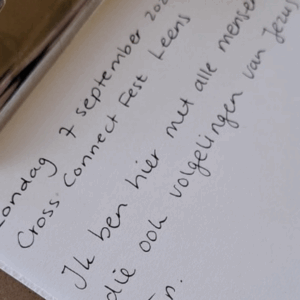 zondag 7 september 202
Cross Connect Fest Leens
Ik ben hier met alle mensen
die ook volgelingen van Jezus